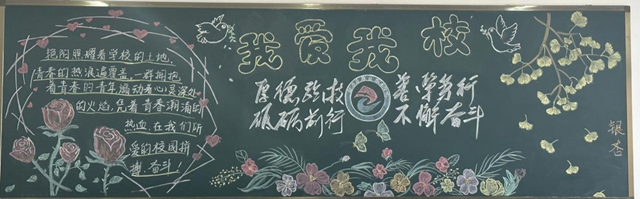 艳阳照耀着学校的土地,
青春的热浪 一群拥抱
着青春的青年 动着心灵深处
的火焰,凭着青春潮涌的
热血,在我们所
爱的校园拼
搏、奋斗!
我爱我校
厚德强技 善学务行
砥砺前行 不懈奋斗
银杏